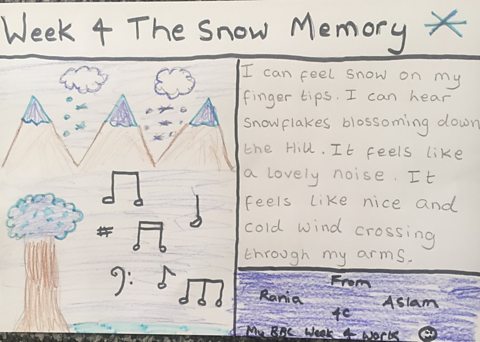 Week 4 The Snow Memory
I can feel snow on my
finger tips. I can hear
snowflakes blossoming down
the Hill. It feels like
a lovely noise. It
feels like nice and
cold wind crossing
through my arms.
From
Rania Aslam
4C
My BBC Week 4 Work